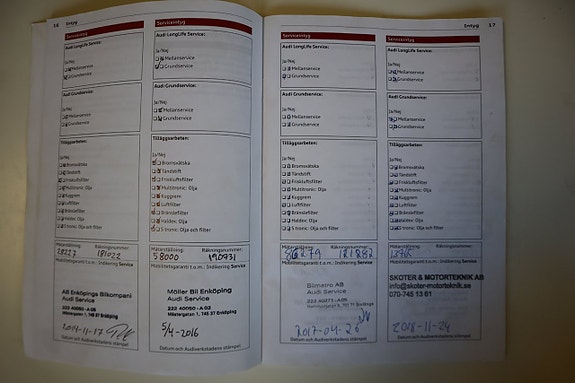 16 Intyg
Serviceintyg
Audi LongLife Service:
Ja/Nej
Mellanservice
Grundservice
Audi Grundservice:
Ja/Nej
Mellanservice
Grundservice
Tilläggsarbeten:
Ja/Nej
Bromsvätska
Tändstift
Friskluftsfilter
Multitronic: Olja
Kuggrem
Luftfilter
Bränslefilter
Haldex: Olja
S tronic: Olja och filter
Mätarställning: Räkningsnummer:
28227 181022
Mobilitetsgaranti t.o.m.: Indikering Service
AB Enköpings Bilkompani
Audi Service
Datum och Audiverkstadens stämpel
Serviceintyg
Audi LongLife Service:
Ja/Nej
Mellanservice
Grundservice
Audi Grundservice:
Ja/Nej
Mellanservice
Grundservice
Tilläggsarbeten:
Ja/Nej
Bromsvätska
Tändstift
Friskluftsfilter
Multitronic: Olja
Kuggrem
Luftfilter
Bränslefilter
Haldex: Olja
S tronic: Olja och filter
Mätarställning: Räkningsnummer:
58000 190931
Mobilitetsgaranti t.o.m.: Indikering Service
Möller Bil Enköping
Audi Service
223 40050 - A 02
Mästergatan 1, 745 37 Enköping
5/4-2016
Datum och Audiverkstadens stämpel
Intyg 17
Serviceintyg
Audi LongLife Service:
Ja/Nej
Mellanservice
Grundservice
Audi Grundservice:
Ja/Nej
Mellanservice
Grundservice
Tilläggsarbeten:
Ja/Nej
Bromsvätska
Tändstift
Friskluftsfilter
Multitronic: Olja
Kuggrem
Luftfilter
Bränslefilter
Haldex: Olja
S tronic: Olja och filter
Mätarställning: Räkningsnummer:
86279 121282
Mobilitetsgaranti t.o.m.: Indikering Service
Bilmairo AB
Audi Service
2017-04-26
Datum och Audiverkstadens stämpel
Serviceintyg
Audi LongLife Service:
Ja/Nej
Mellanservice
Grundservice
Audi Grundservice:
Ja/Nej
Mellanservice
Grundservice
Tilläggsarbeten:
Ja/Nej
Bromsvätska
Tändstift
Friskluftsfilter
Multitronic: Olja
Kuggrem
Luftfilter
Bränslefilter
Haldex: Olja
S tronic: Olja och filter
Mätarställning: Räkningsnummer:
Mobilitetsgaranti t.o.m.: Indikering Service
SKOTER & MOTORTEKNIK AB
info@skoter-motorteknik.se
070-745 13 61
2018-11-24
Datum och Audiverkstadens stämpel